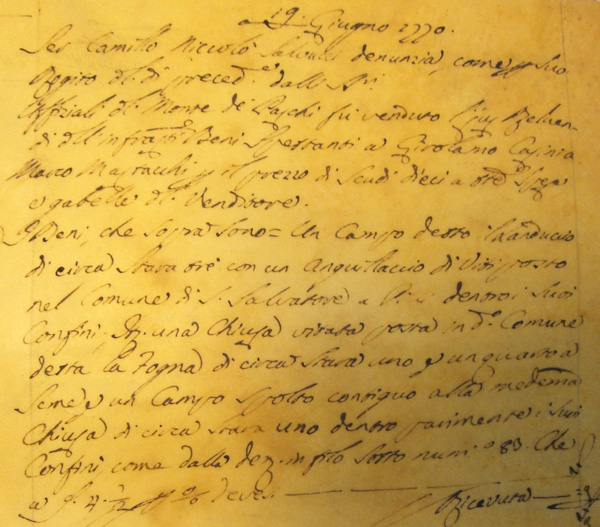 a 19. Giugno 1770.
Ser Camillo Niccolò denunzia, come p suo
Rogito del dì preced.e dalli SS.ri
Offiziali del Monte de Paschi fu venduto l'jus Reluen-
di dell' infra.tti Beni Spettanti a Girolamo
Marco p il prezzo di Scudi dieci a oro
e gabelle del Venditore.
I Beni che sopra sono = Un Campo detto
di circa Stara tre con un Anguillaccio di Viti posto
nel Comune di S. Salvatore a dentro i Suoi
Confini. It. una Chiusa vitata posta in d.o Comune
detta La Fogna di circa Stara uno e un quarto a
Seme e un Campo Spolto contiguo alla medema
Chiusa di circa Stara uno dentro parimente i Suoi
Confini come dalla den. in filo Sotto num.o 83. Che
a deve
Ricevuta